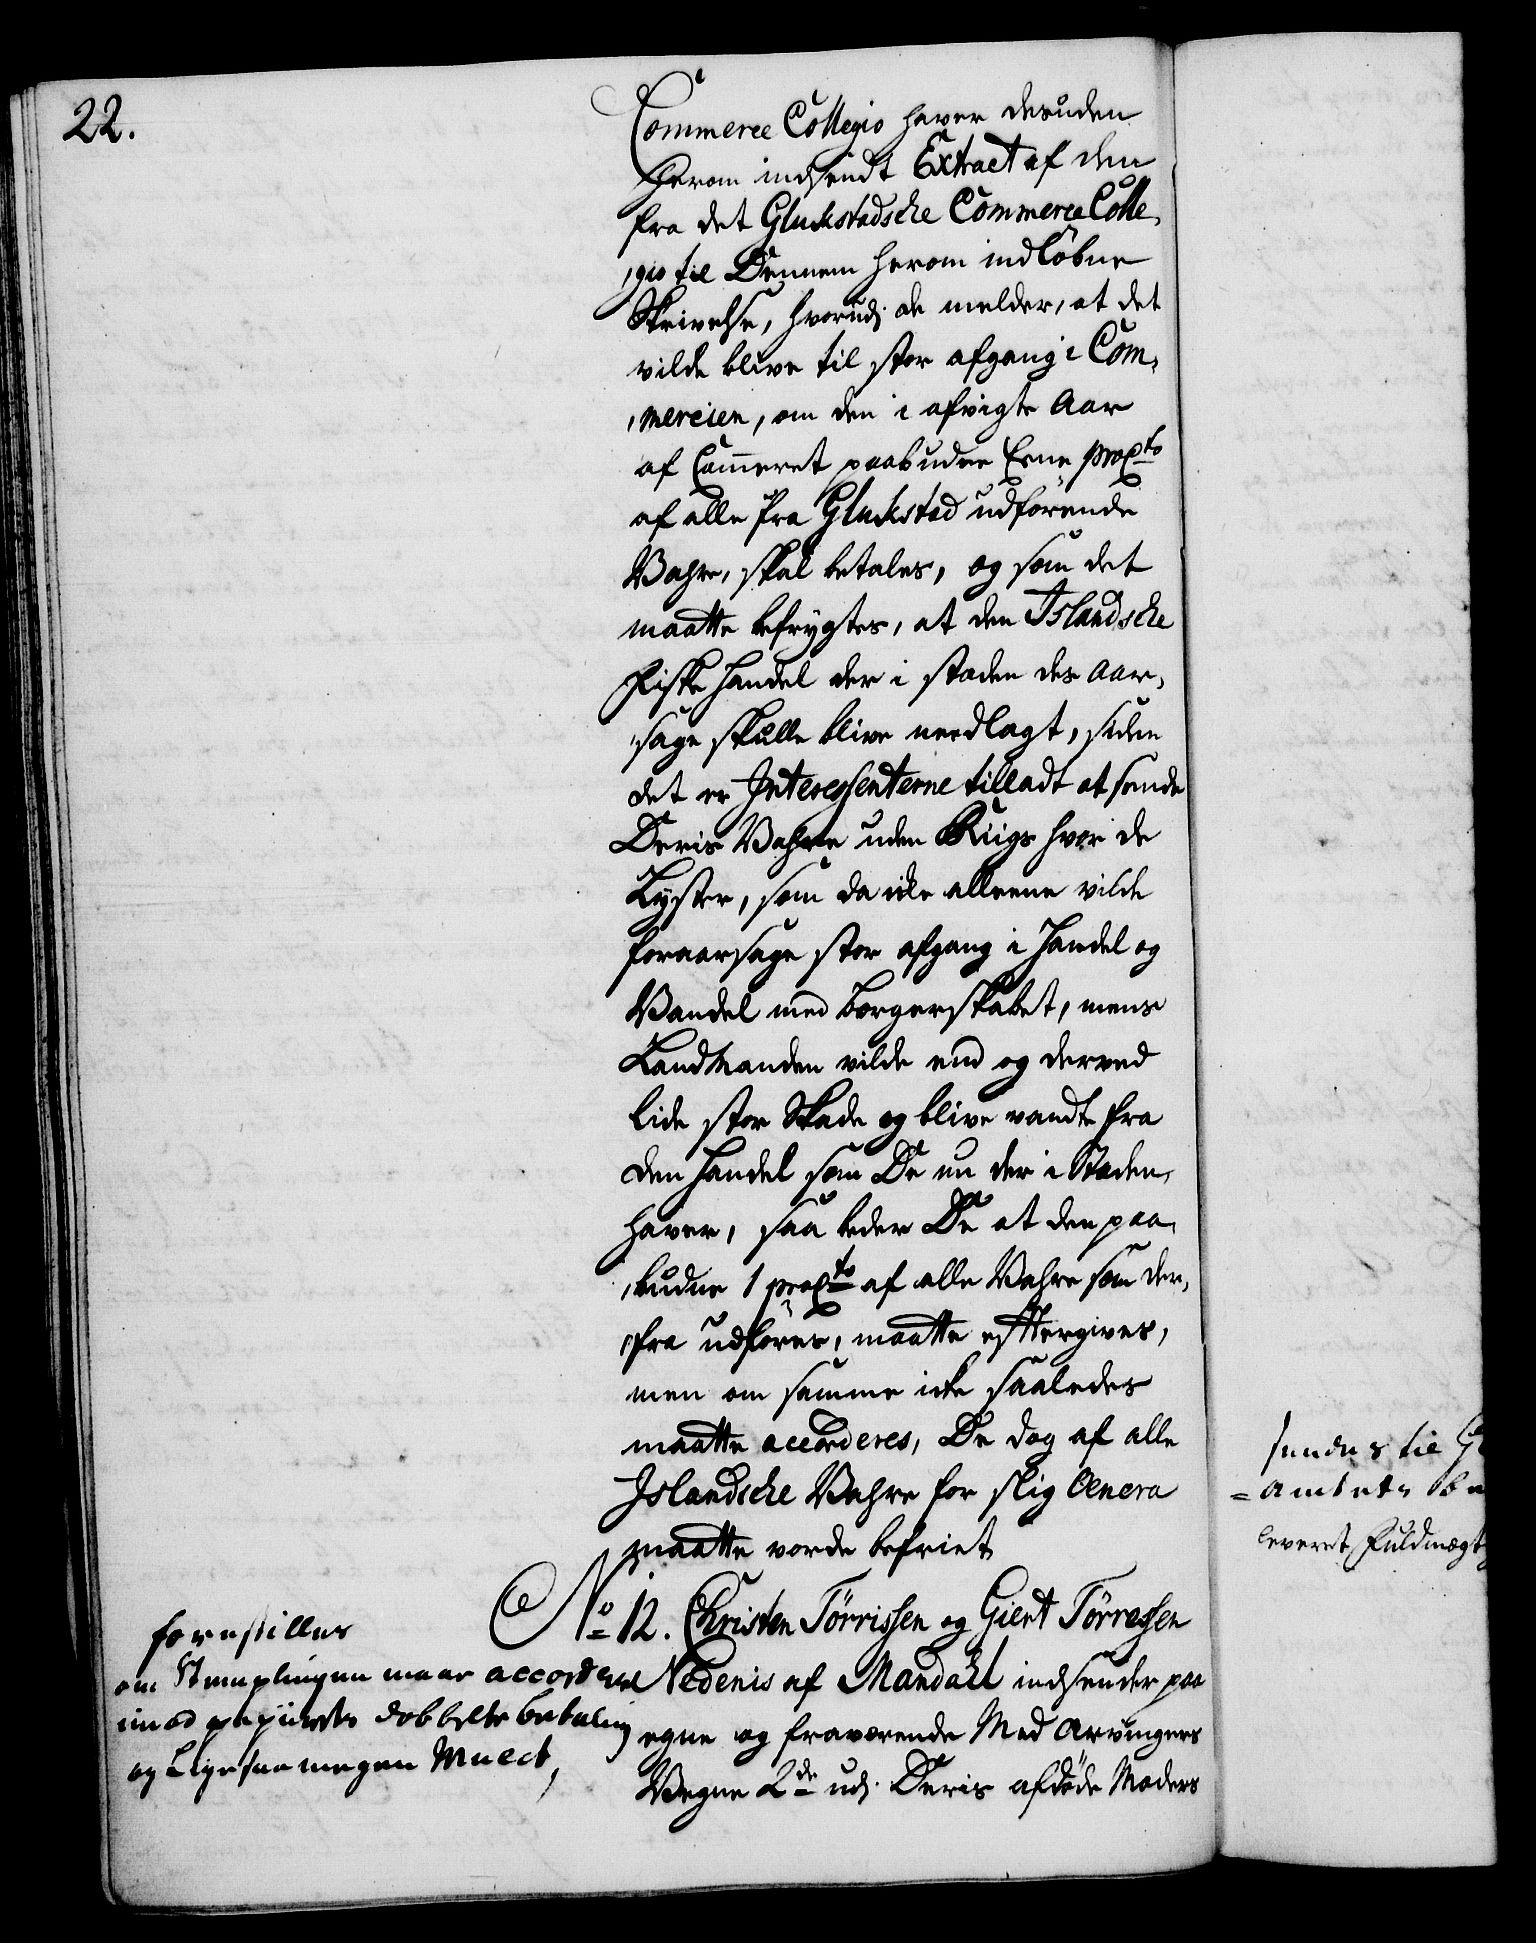 22.
Commerce Collegio haver desuden
herom indsendt Extract af den
fra det Gluckstadsche Commerce Colle,
,gio til Dennem herom indløbne
Skrivelse, hvorudj de melder, at det
vilde blive til stor afgang i Com,
,mercien, om den i afvigte Aar
af Cam̄eret paabudne Eene proCto
af alle fra Gluckstad udførende
Vahre, skal betales, og som det
maatte befrygtes, at den Islandsche
Fiske Handel der i staden des aar,
,sage skulle blive needlagt, siden
det er Interessenterne tilladt at sende
Deris Vahre uden Riigs hvor de
Lyster, som da icke alleene vilde
foraarsage stor afgang i Handel og
Vandel med Borgerskabet, mens
Landmanden vilde end og derved
lide stor Skade og blive vandte fra
den Handel som De nu der i Staden,
haver, saa beder De at den paa,
,budne 1 proCto af alle Vahre som der,
,fra udføres, maatte efftergives,
men om samme icke saaledes
maatte accorderes, De dog af alle
Islandsche Vahre for slig Onera
maatte vorde befriet
No 12. Christen Törrissen og Giert Törressen
Nedenis af Mandahl indsender paa
egne og fraværende Med Arvingers
Vegne 2de udj Deris afdöde Moders
forestilles
om Stemplingen maae accorderes
imod papiirets dobbelte betaling
og Ligesaa megen Mulct,
sendes til
= Amtets
leveret Fuldmægt